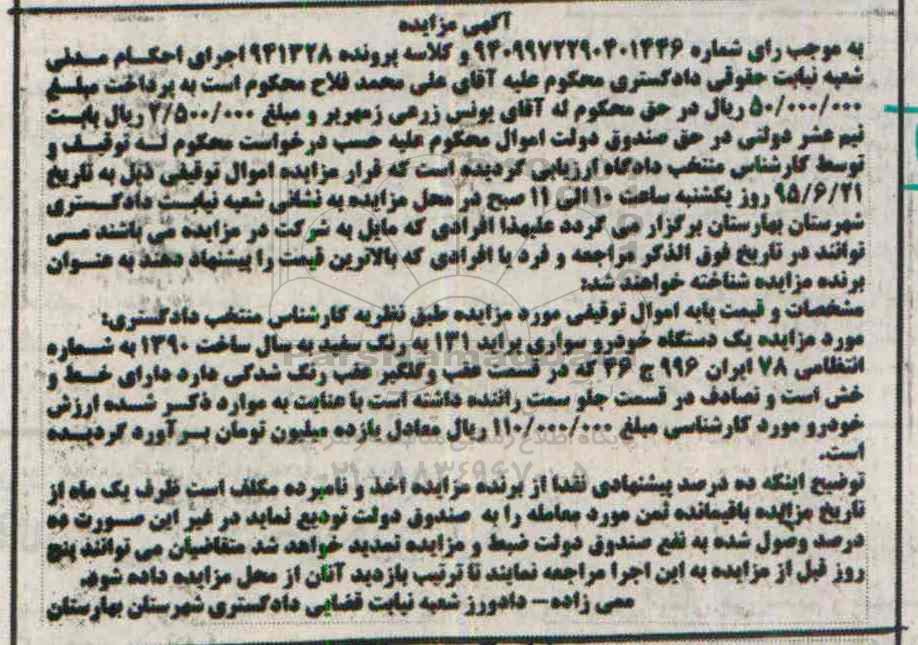 آگهی مزایده
به موجب رای شماره ۹۴۰۹۹۷۲۲۹۰۴۰۱۴۴۶ و کلاسه پرونده ۹۴۱۳۲۸ اجرای احکام مدنی
شعبه نیابت حقوقی دادگستری محکوم علیه آقای علی محمد فلاح محکوم است به پرداخت مبلغ
۵۰/۰۰۰/۰۰۰ ریال در حق محکوم له آقای یونس زرعی زمهریر و مبلغ ۲/۵۰۰/۰۰۰ ریال بابت
نیم عشر دولتی در حق صندوق دولت اموال محکوم علیه حسب درخواست محکوم له توقیف و
توسط کارشناس منتخب دادگاه ارزیابی گردیده است که قرار مزایده اموال توقیفی ذیل به تاریخ
۹۵/۶/۲۱ روز یکشنبه ساعت ۱۰ الی ۱۱ صبح در محل مزایده به نشانی شعبه نیابت دادگستری
شهرستان بهارستان برگزار می گردد علیهذا افرادی که مایل به شرکت در مزایده می باشند می
توانند در تاریخ فوق الذکر مراجعه و فرد یا افرادی که بالاترین قیمت را پیشنهاد دهند به عنوان
برنده مزایده شناخته خواهند شد:
مشخصات و قیمت پایه اموال توقیفی مورد مزایده طبق نظریه کارشناس منتخب دادگستری:
مورد مزایده یک دستگاه خودرو سواری پراید ۱۳۱ به رنگ سفید به سال ساخت ۱۳۹۰ به شماره
انتظامی ۷۸ ایران ۹۹۶ ج ۳۶ که در قسمت عقب وگلگیر عقب رنگ شدگی دارد دارای خط و
خش است و تصادف در قسمت جلو سمت راننده داشته است با عنایت به موارد ذکر شده ارزش
خودرو مورد کارشناسی مبلغ ۱۱۰/۰۰۰/۰۰۰ ریال معادل یازده میلیون تومان برآورد گردیده
است.
توضیح اینکه ده درصد پیشنهادی نقدا از برنده مزایده اخذ و نامبرده مکلف است ظرف یک ماه از
تاریخ مزایده باقیمانده ثمن مورد معامله را به صندوق دولت تودیع نماید در غیر این صورت ده
درصد وصول شده به نفع صندوق دولت ضبط و مزایده تمدید خواهد شد متقاضیان می توانند پنج
روز قبل از مزایده به این اجرا مراجعه نمایند تا ترتیب بازدید آنان از محل مزایده داده شود.
ممی زاده- دادورز شعبه نیابت قضایی دادگستری شهرستان بهارستان
ParsNamadData